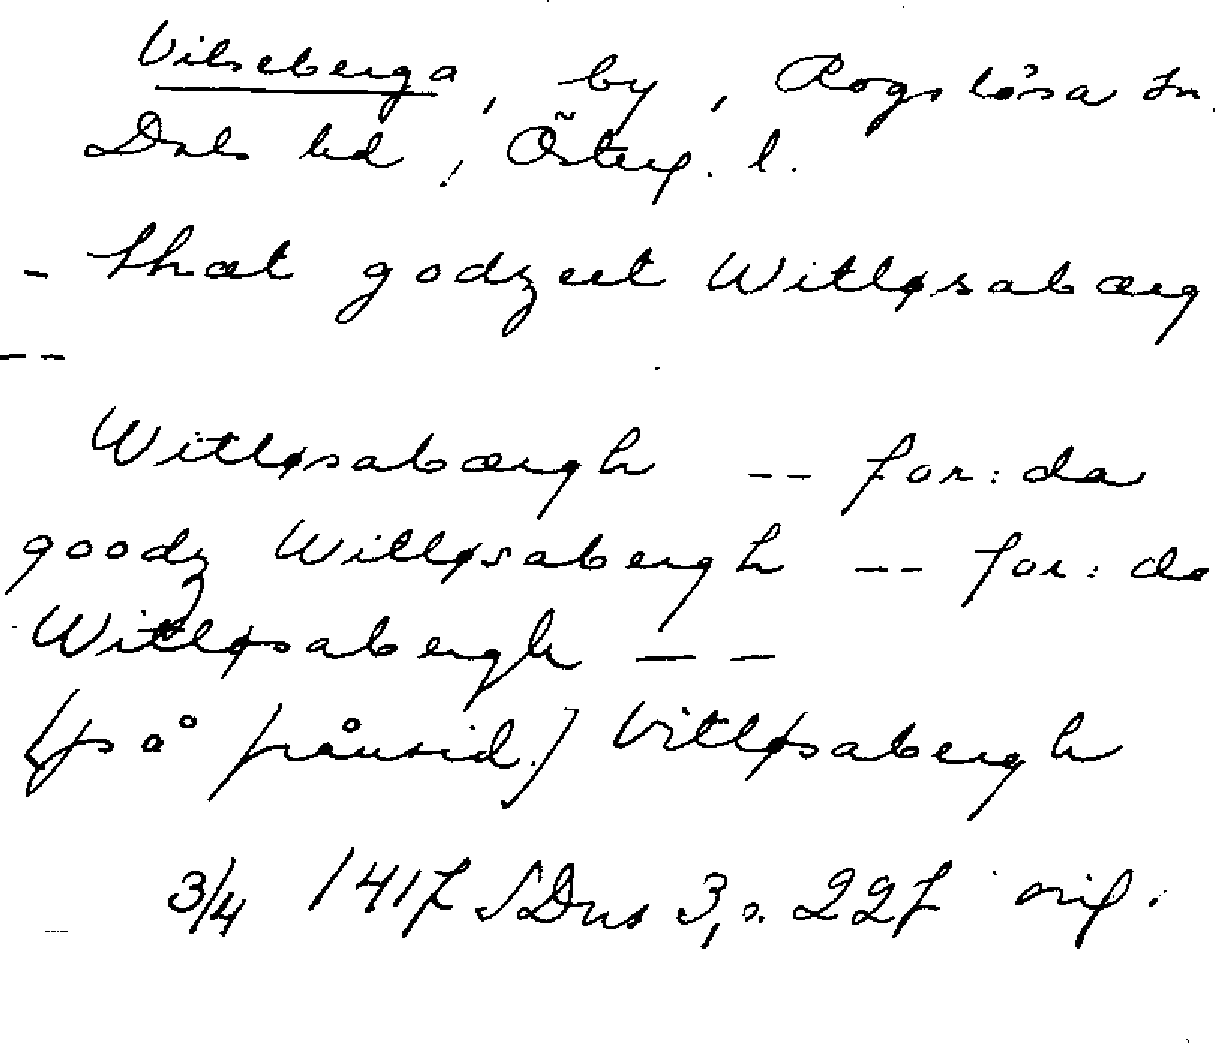 Vilseberga, by, Rogslösa sn.
Dals hd, Österg. l.
- thæt godzeet Witløsabærg
--
Witløsabærgh -- for:da
goodz Witløsabergh -- for:da
Witløsabergh --
[på frånsid.] Vitløsabergh
3/4 1417 SDns 3, s. 227 orig.